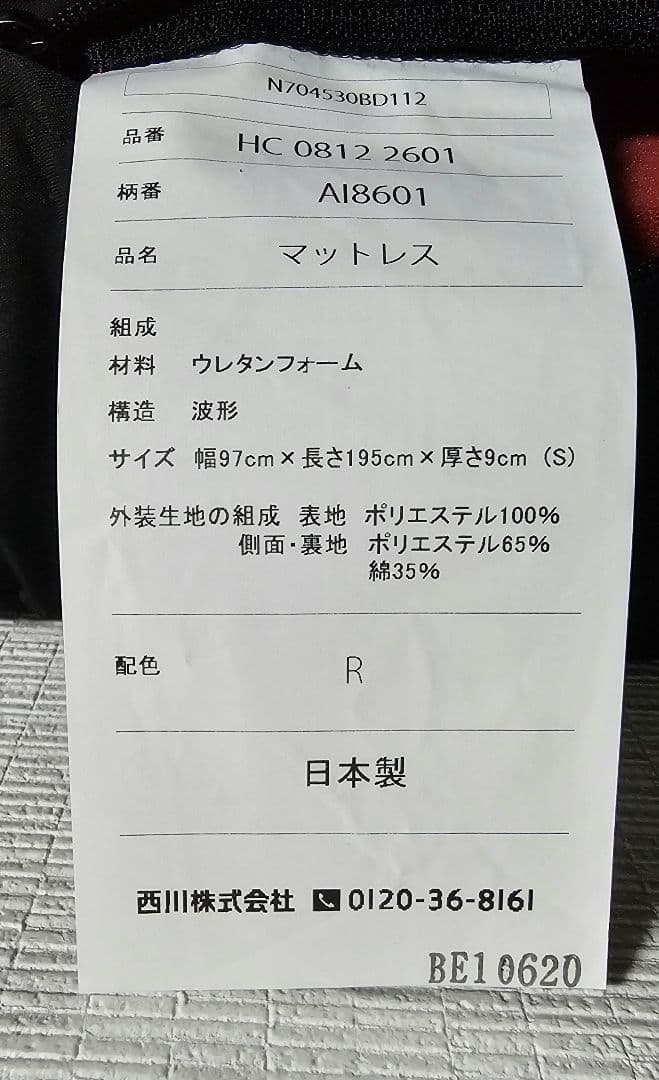 N704530BD112
品番 HC 0812 2601
柄番 AI8601
品名 マットレス
組成
材料 ウレタンフォーム
構造 波形
サイズ 幅97cm×長さ195cm×厚さ9cm (S)
外装生地の組成 表地 ポリエステル100%
側面・裏地 ポリエステル65%
綿35%
配色 R
日本製
西川株式会社 0120-36-8161
BE10620